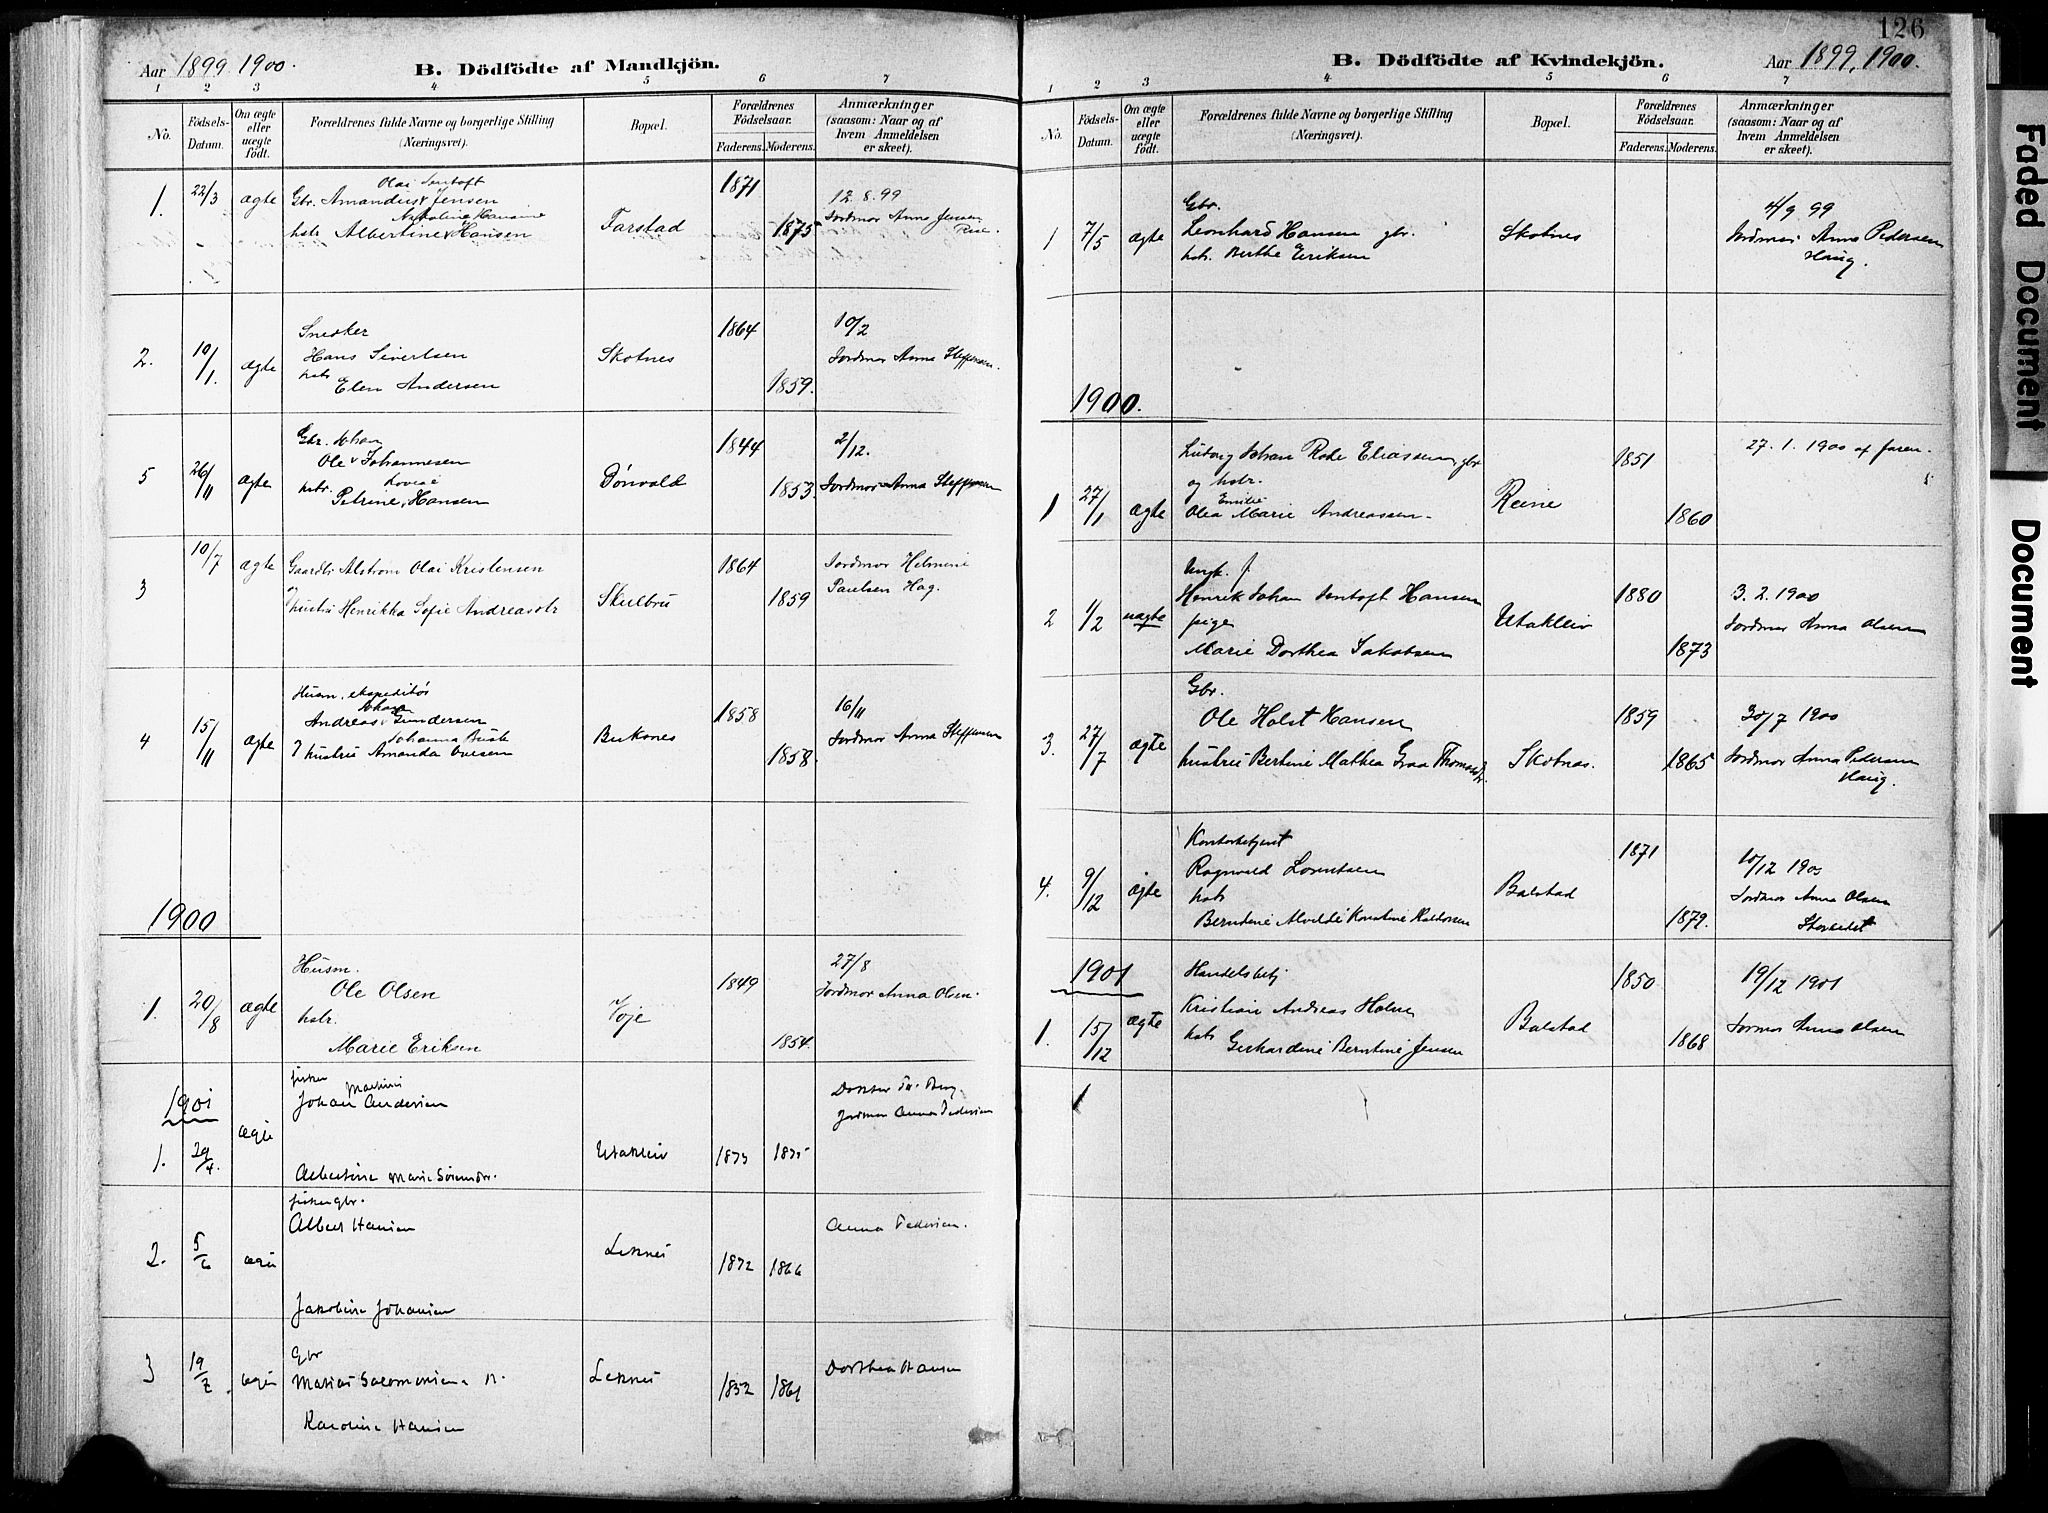 Aar 1899. 1900.
B. Dödfödte af Mandkjön.
1 2 3 4 5 6 7
No.
Födsels-Datum.
Om ægte eller uægte födt.
Forældrenes fulde Navne og borgerlige Stilling
(Næringsvei).
Bopæl.
Forældrenes Födselsaar.
Faderens. Moderens.
Anmærkninger
(saasom: Naar og af
hvem Anmeldelsen
er skeet).
Olai Jentoft
1. 22/3 ægte Gbr. Amandus Jensen 1871 12.8.99
hstr Albertine Hansen Farstad 1875 Jordmor Anna Jensen
Snedker 1864 10/2
2. 10/1. ægte Hans Sivertsen Skotnes Jordmor Anna Steffensen.
hstr
Elen Andersen 1859.
Gbr. Johan 1844 2/12.
5 26/11 ægte Ole Johannesen Dønvold
hstr. Lovise 1853. Jordmor Anna Steffensen
Petrine Hansen
3 10/7 ægte Gaardbr Alstrom Olai Kristensen 1864 Jordmor Helmine
og hustru Henrikka Sofie Andreasdtr Skulbru 1859 Paulsen Hag.
Husm. ekspeditør 1858 16/11
Johan
4 15/11 ægte Andreas Gundersen Buksnes Jordmor Anna Steffensen
Johanna
hustru Amanda Ovesen 1858.
1900
Husm. 27/8
1. 20/8 ægte Ole Olsen Voje 1849 Jordmor Anna Olsen.
hstr.
Marie Eriksen 1854.
1901
fisker
Martin
Johan Andersen Doktor Fr. Berg.
ægte Jordmor Anna Pedersen
1. 29/4. Utakleiv 1873 1875
Albertine Marie Sörensdr.
fisker gbr.
Albert Hansen Anna Pedersen.
2. 5/6 ægte Leknes 1872 1866
Jakobine Johansen
Gbr
3 19/7. ægte Marius Salomonsen Leknes 1852 1861 Dorthea Hansen
Karoline Hansen
126
B. Dödfödte af Kvindekjön.
Aar 1899, 1900.
1 2 3 4 5 6 7
No.
Födsels-Datum.
Om ægte eller uægte födt.
Forældrenes fulde Navne og borgerlige Stilling
(Næringsvei).
Bopæl.
Forældrenes Födselsaar.
Faderens. Moderens.
Anmærkninger
(saasom: Naar og af
hvem Anmeldelsen
er skeet).
Gbr. 4/9 99
1 7/5 ægte Leonhard Hansen gbr. Skotnes Jordmor Anna Pedersen
hstr. Berthe Eriksen Haug.
1900.
Ludvig Johan Rode Eliassen, gbr 1851 27.1.1900 af faren.
og hstr.
Emilie
1 27/1 ægte Olea Marie Andreassen. Reine 1860
Ungk. f.
Henrik Johan Jentoft Hansen 1880 3.2.1900
2 1/2 uægte pige Utakleiv Jordmor Anna Olsen
Marie Dorthea Jakobsen 1873
Gbr.
Ole Holst Hansen 1859 30/7 1900
3. 27/7 ægte hustru Bertine Mathea Graa Thomasdr. Skotnes. 1865 Jordmor Anna Pedersen
Haug.
Kontorbetjent 1871
Ragnvald Lorentsen 10/12 1900
4. 9/12 ægte hstr Balstad Jordmor Anna Olsen
Berntine Alvilde Konstine Haldorsen 1879. Storeidet
1901 Handelsbetj 1850 19/12 1901
Kristian Andreas Holm
1. 15/12 ægte hstr Balstad Jormor Anna Olsen
Gerhardine Berntine Jensen 1868
Faded Document
Document